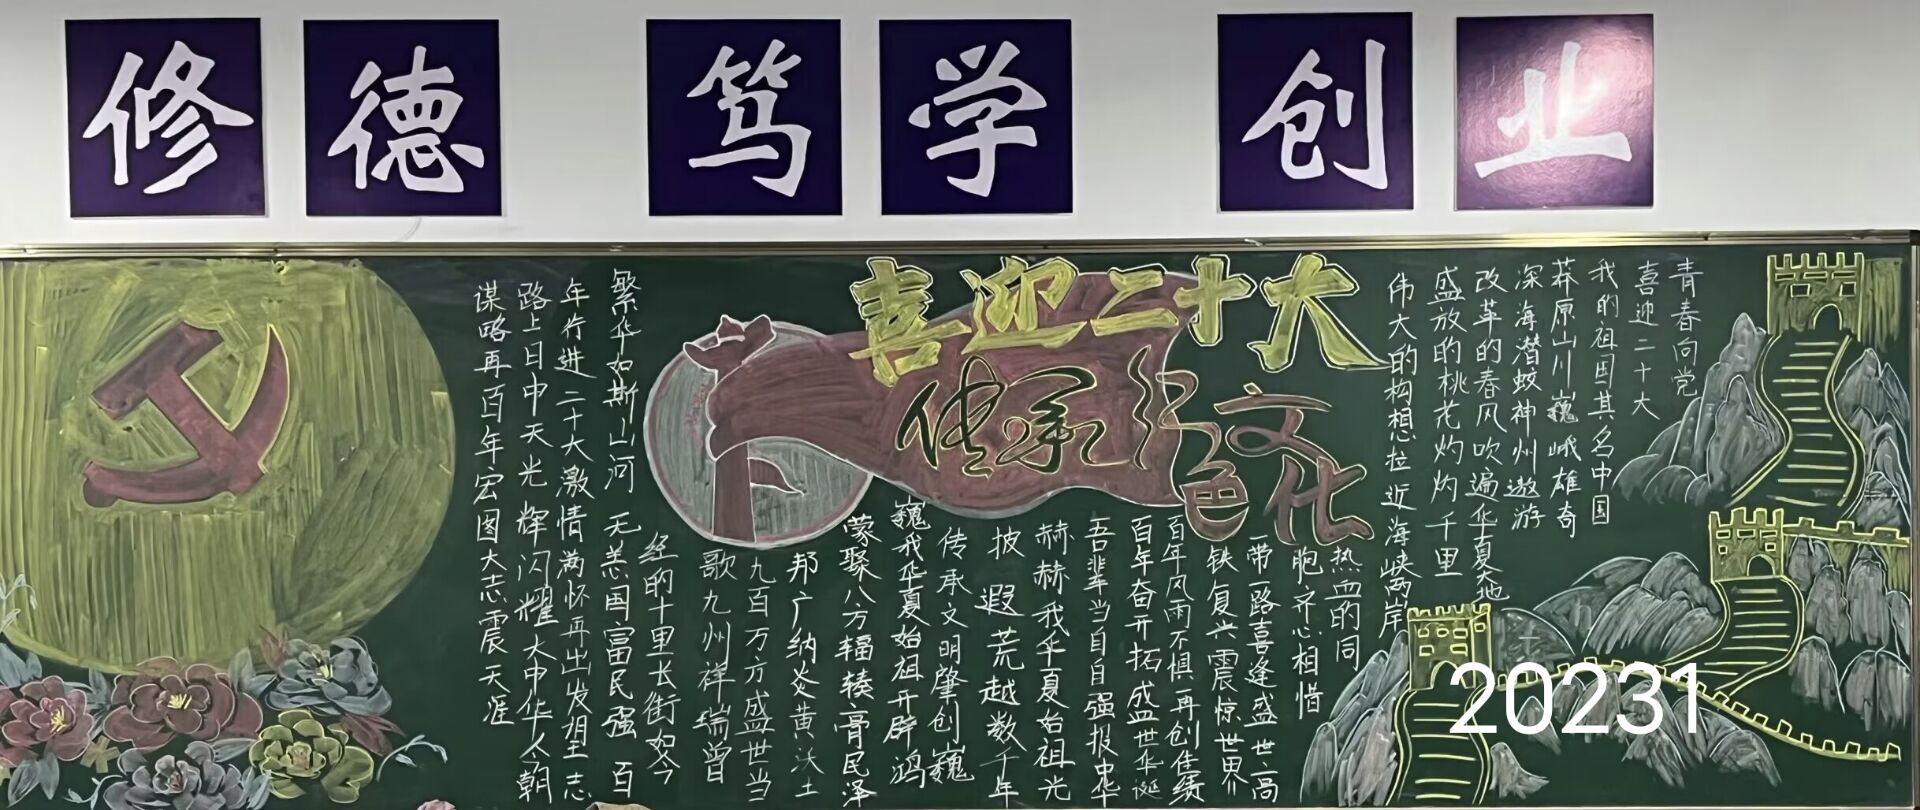 修德 笃学 创业
喜迎二十大
传承红色文化
青春向党
喜迎二十大
我的祖国其名中国
莽原山川巍峨雄奇
深海潜蛟神州遨游
改革的春风吹遍华夏大地
盛放的桃花灼灼千里
伟大的构想拉近海峡两岸
热血的同
胞齐心相惜
一带一路喜逢盛世高
铁复兴震惊世界
百年风雨不惧再创佳绩
百年奋开拓盛世华诞
吾辈当自自强报中华
赫赫我华夏始祖光
披遐荒越数千年
传承文明肇创巍
巍我华夏始祖开辟鸿
蒙聚八方辐辏膏民泽
邦广纳炎黄沃土
九百万方盛世当
歌九州祥瑞曾
经的十里长街如今
繁华如斯山河无恙国富民强百
年行进二十大激情满怀再出发望志
路上日中天光辉闪耀大中华今朝
谋略再百年宏图大志震天涯
20231